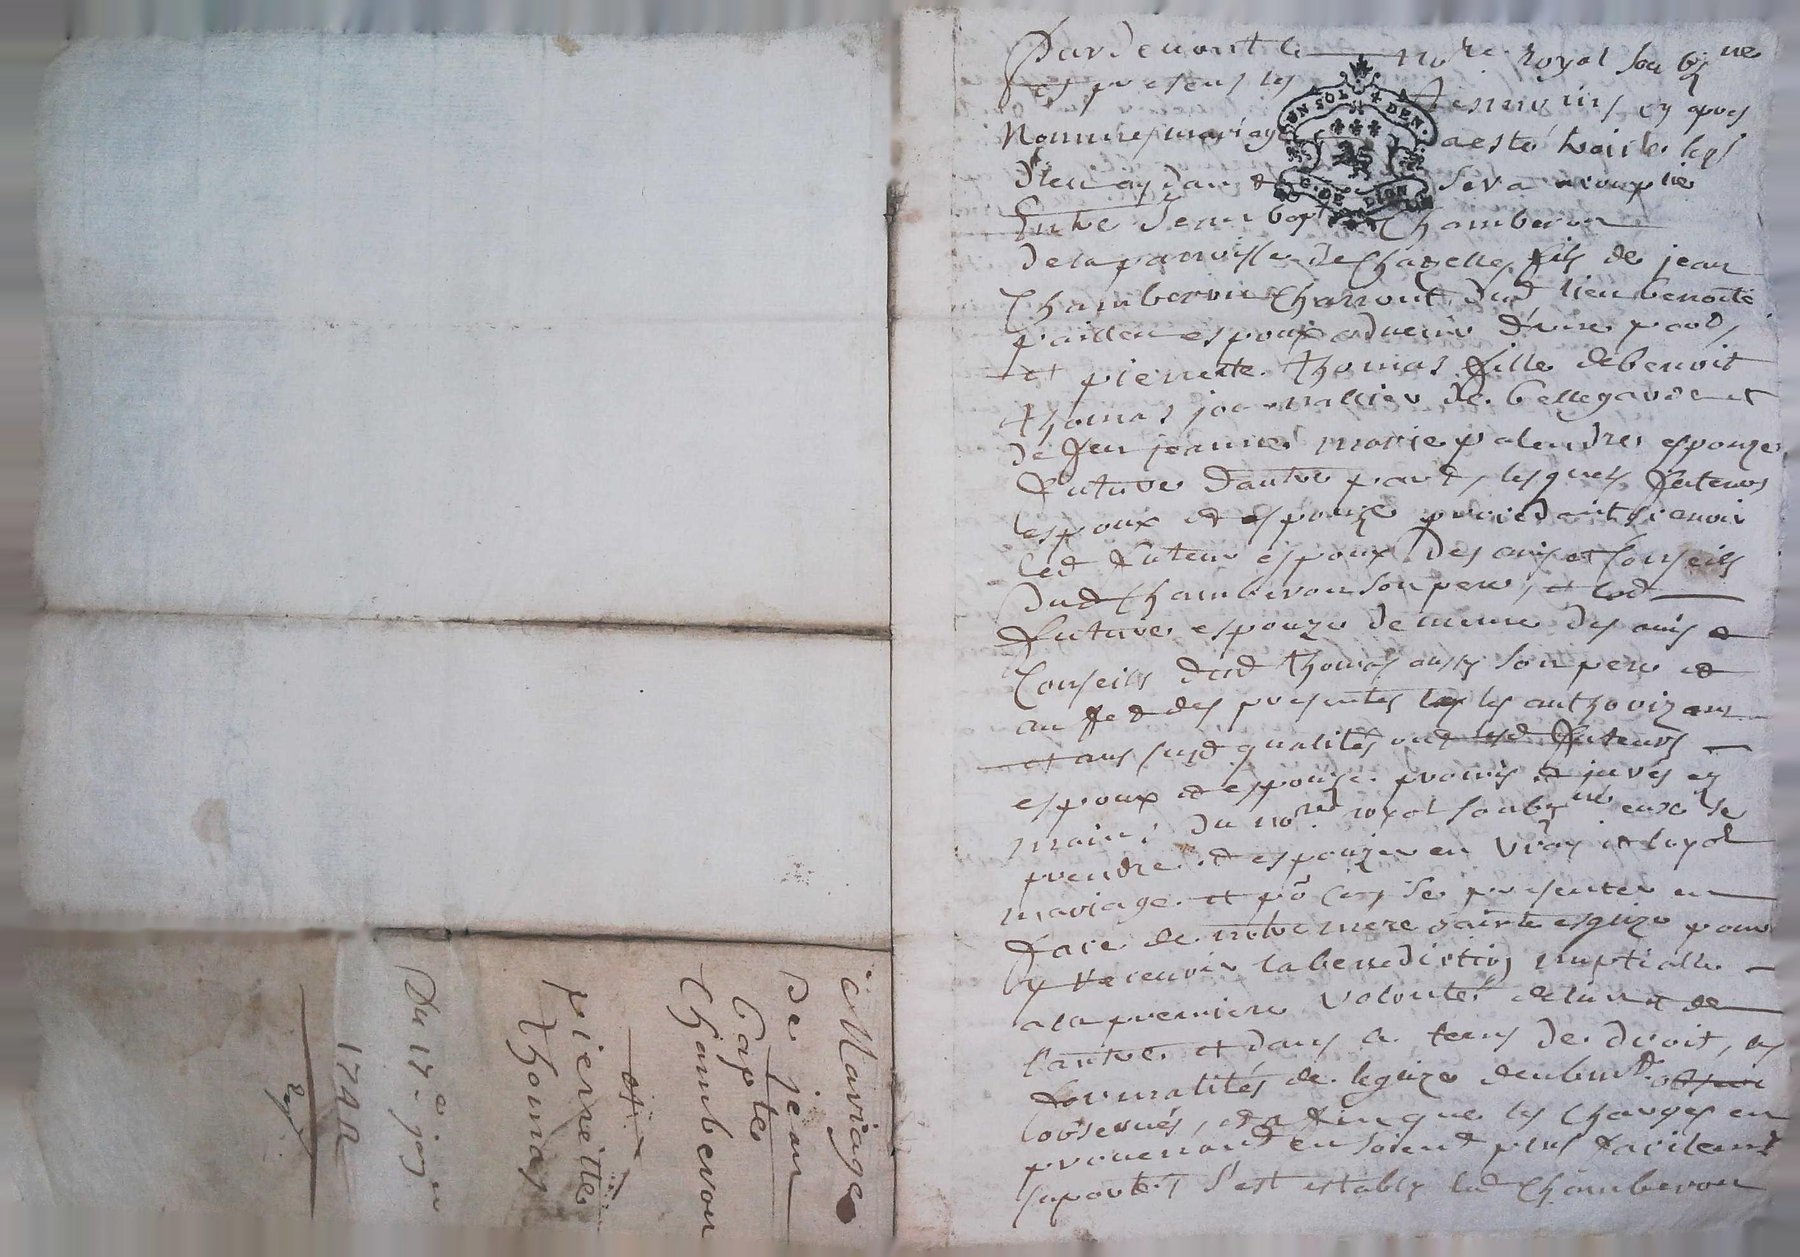 Pardevant le Nore royal soubzne
et presens les tesmoins cy apres
Nommes mariage a esté traicté leql
Dieu aydant sera accomply
Entre Jean bapte Chamberon
de la parroisse de Chazelles fils de jean
Chamberon Charront dud lieu benoite
espoux advenir d'une part,
et pierrette thomas fille de benoit
thomas journallier de bellegarde et
de feu jeanne marie palandre espouze
future d'autre part, lesquels futeurs
espoux et espouze procedant scavoir
led futeur espoux des avis et Conseils
dud Chamberon son pere, et lad
future espouze de meme des avis et
Conseils dud thomas aussy son pere et
au fet des presentes les authorizant
et aux susd qualités ont lesd futeurs
espoux et espouze promis et jurés es
mains du nore royal soubzné eux se
prendre et espouzer en vray et loyal
mariage et po cest se presenter en
face de notre mere sainte esglize pour
y recevoir la benediction nuptialle
a la premiere volonté de l'un et de
l'autre et dans le tems de droit, les
formalités de leglize deubmt
observés, et afin que les charges en
provenant en soient plus facilemt
suportés s'est estably led Chamberon
Mariage
De jean
Bapte
Chamberon
et
pierrette
thomas
Du 17e
SOL 4 DEN.
G. DE LION